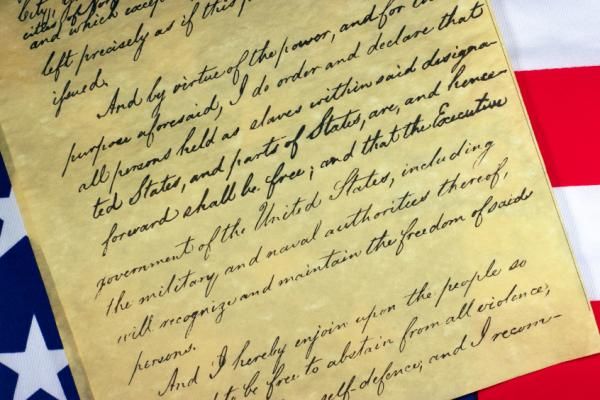 City,
cities of
and which except
left precisely as if this
issued.
And by virtue of the power, and for the
purpose aforesaid, I do order and declare that
all persons held as slaves within said designa-
ted States, and parts of States, are, and hence-
forward shall be free; and that the Executive
government of the United States, including
the military and naval authorities thereof,
will recognize and maintain the freedom of said
persons.
And I hereby enjoin upon the people so
to be free to abstain from all violence,
self-defence; and I recom-